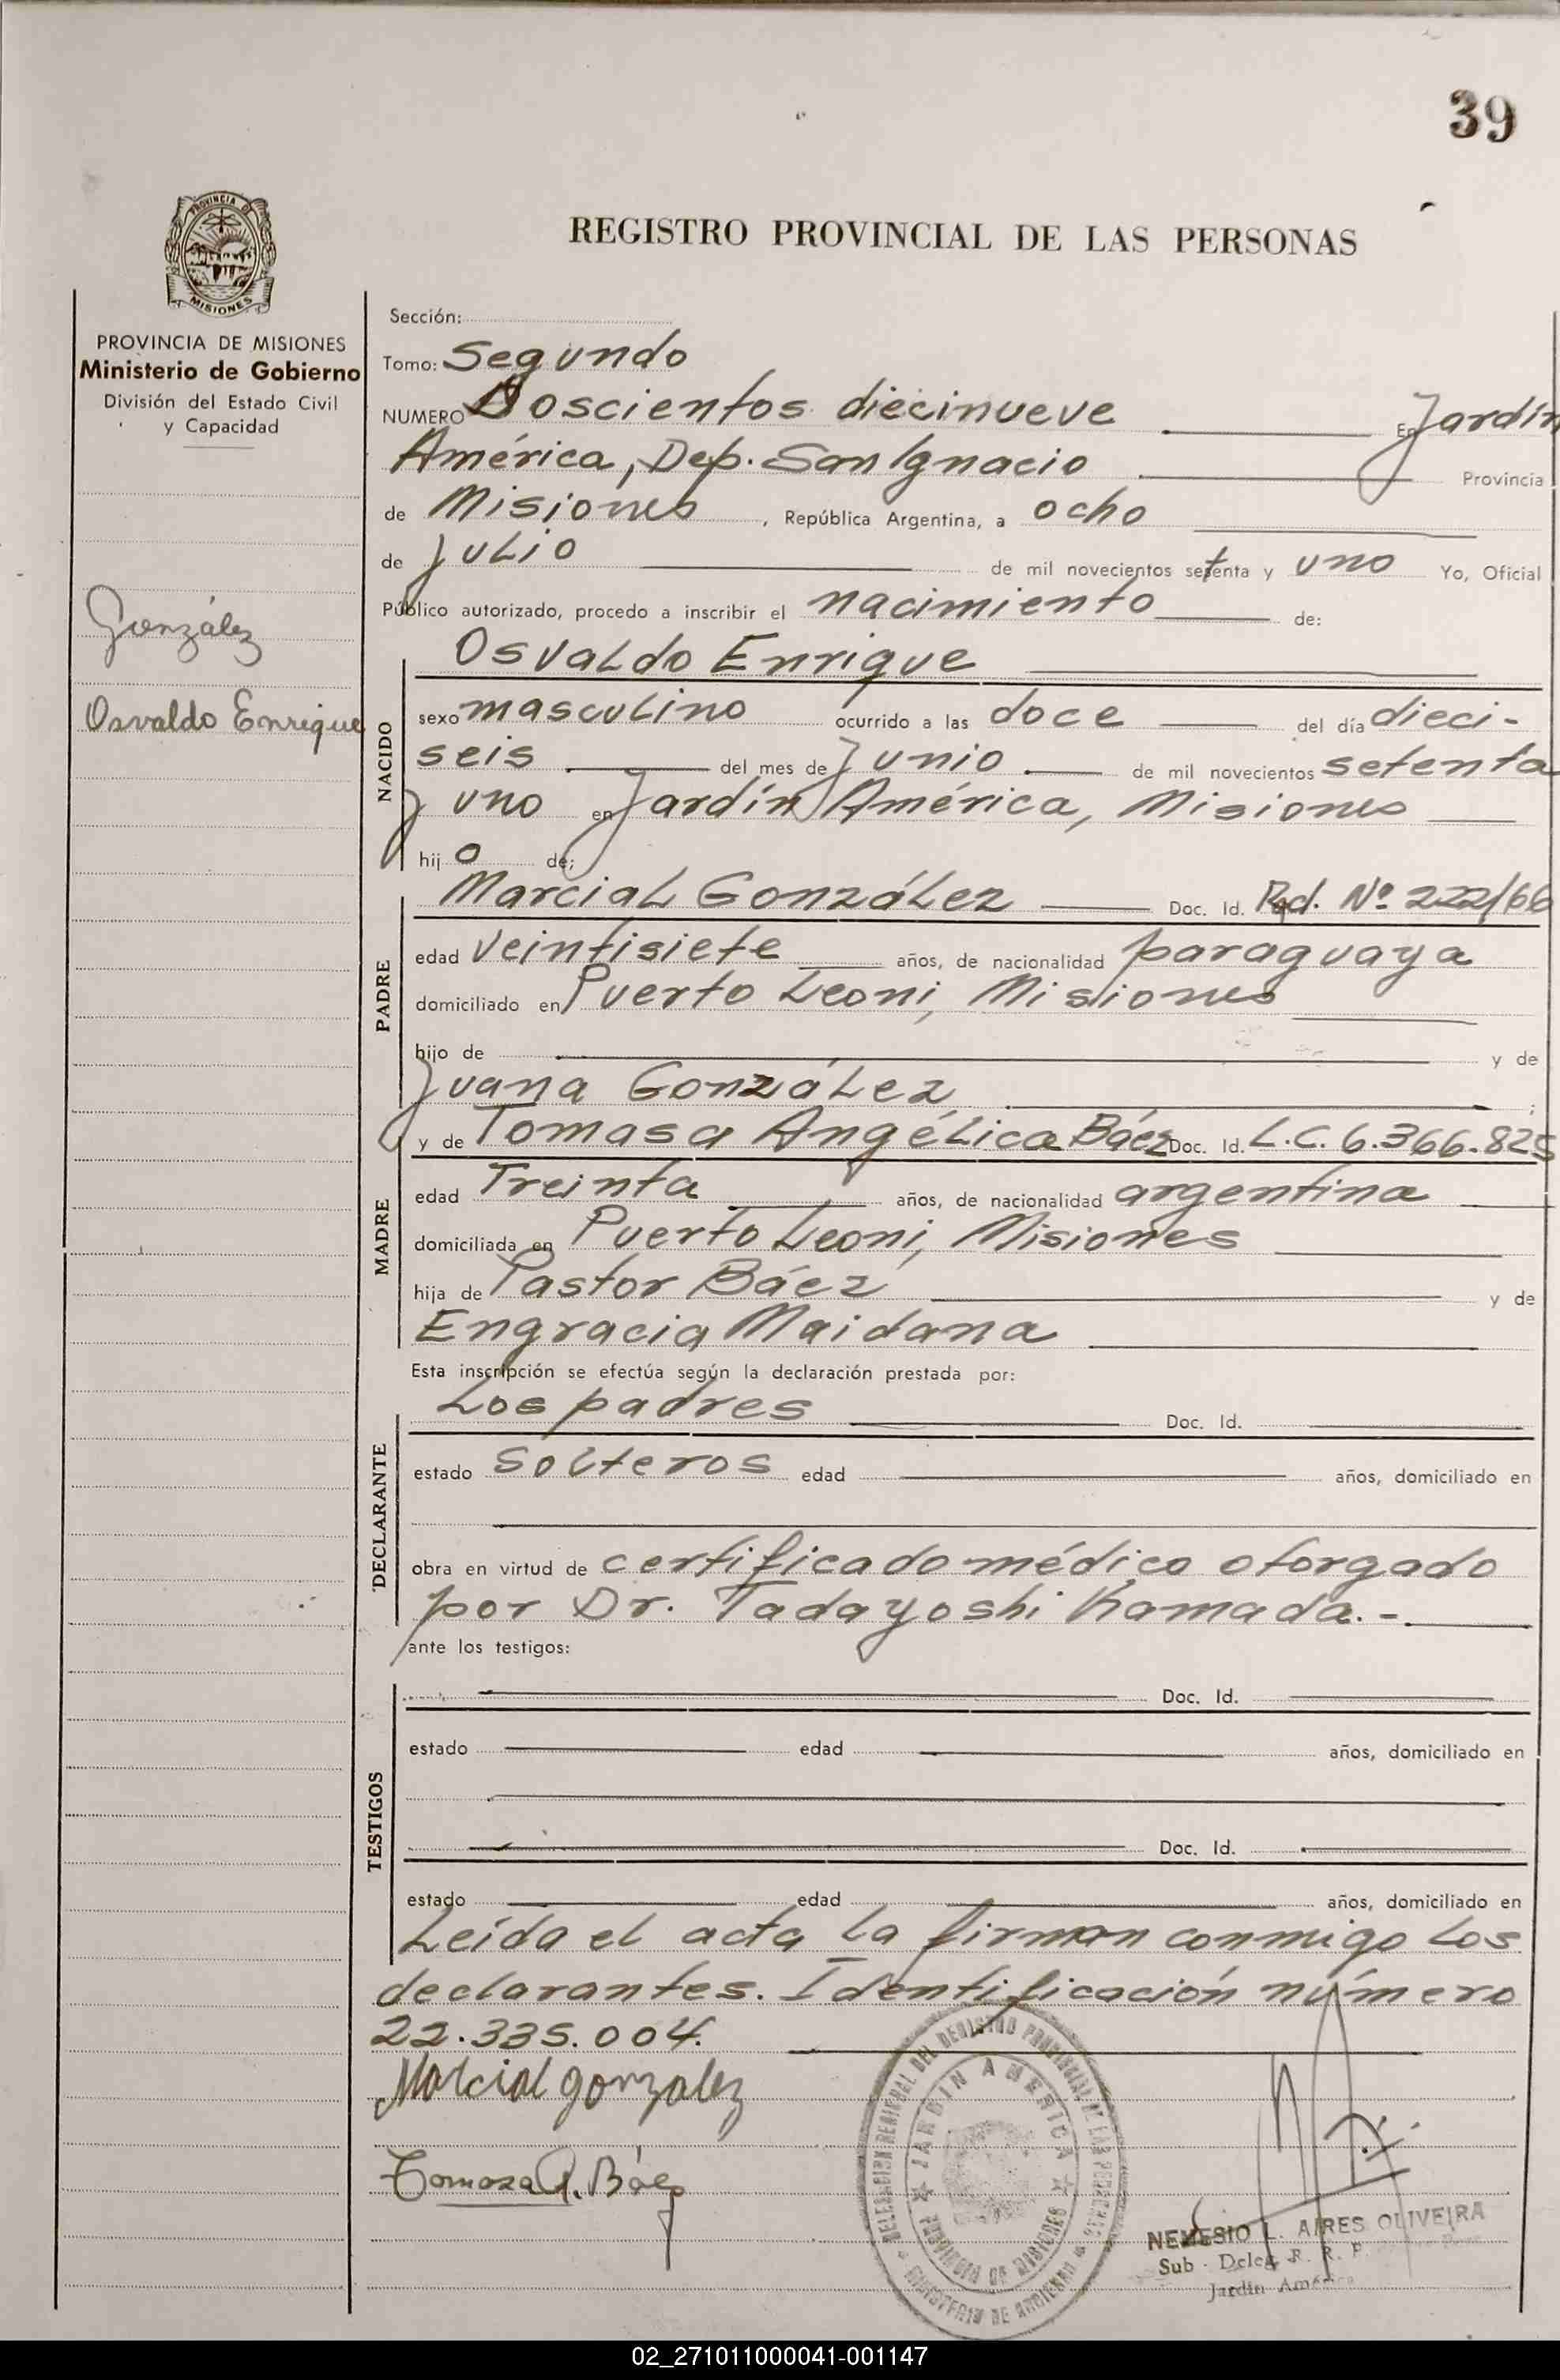 39
REGISTRO PROVINCIAL DE LAS PERSONAS
PROVINCIA DE
MISIONES
PROVINCIA DE MISIONES
Ministerio de Gobierno
División del Estado Civil
y Capacidad
González
Osvaldo Enrique
Sección:
Tomo: Segundo
NUMERO Doscientos diecinueve En Jardín
América, Dep. San Ignacio Provincia
de Misiones, República Argentina, a ocho
de Julio de mil novecientos setenta y uno Yo, Oficial
Público autorizado, procedo a inscribir el nacimiento de:
Osvaldo Enrique
NACIDO
sexo masculino ocurrido a las doce del día dieci-
seis del mes de Junio de mil novecientos setenta
y uno en Jardín América, Misiones
hijo de:
Marcial González Doc. Id. Rad. Nº 222/66
PADRE
edad veintisiete años, de nacionalidad paraguaya
domiciliado en Puerto Leoni, Misiones
hijo de y de
Juana González;
y de Tomasa Angélica Báez Doc. Id. L.C. 6.366.825
MADRE
edad Treinta años, de nacionalidad argentina
domiciliada en Puerto Leoni, Misiones
hija de Pastor Báez y de
Engracia Maidana
Esta inscripción se efectúa según la declaración prestada por:
Los padres Doc. Id.
DECLARANTE
estado solteros edad años, domiciliado en
obra en virtud de certificado médico otorgado
por Dr. Tadayoshi Kamada.-
ante los testigos:
Doc. Id.
TESTIGOS
estado edad años, domiciliado en
Doc. Id.
estado edad años, domiciliado en
Leída el acta la firman conmigo los
declarantes. Identificación número
22.335.004.
Marcial gonzalez
Tomasa A. Báez
DELEGACION REGIONAL DEL REGISTRO PROVINCIAL DE LAS PERSONAS
JARDIN AMERICA
PROVINCIA DE MISIONES
MINISTERIO DE GOBIERNO
NEMESIO L. AIRES OLIVEIRA
Sub - Deleg. R. R. P.
Jardín América
02_271011000041-001147